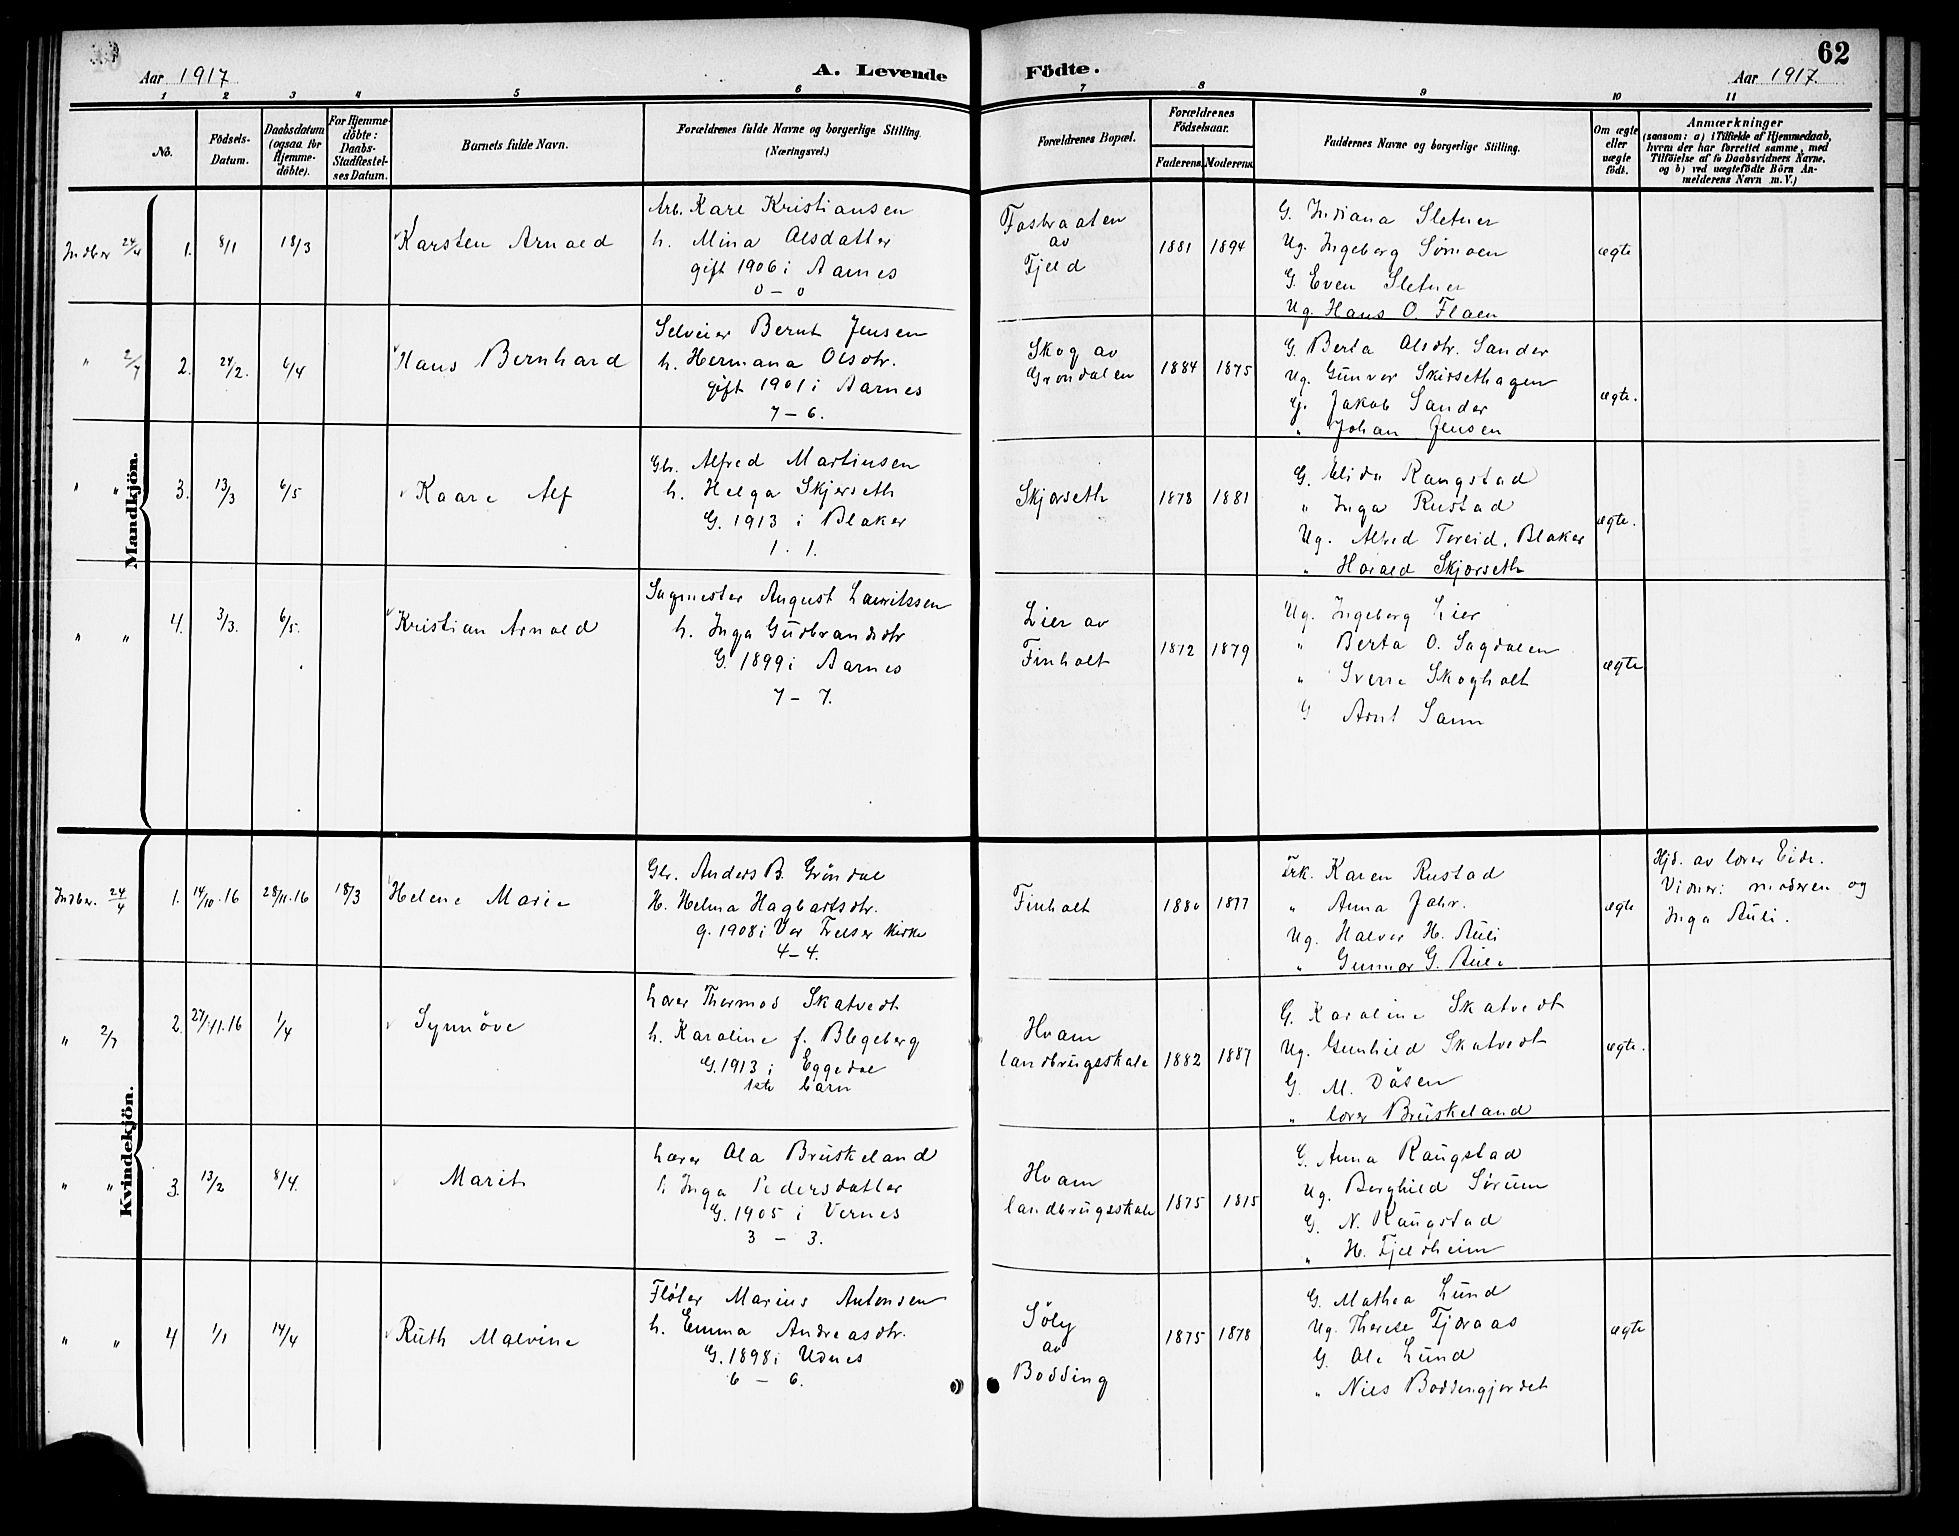 62
Aar 1917. A. Levende Födte. Aar 1917.
1 2 3 4 5 6 7 8 9 10 11
No.
Födsels-
Datum.
Daabsdatum
(ogsaa for
Hjemme-
döbte).
For Hjemme-
döbte:
Daabs-
Stadfæstel-
ses Datum.
Barnets fulde Navn.
Forældrenes fulde Navne og borgerlige Stilling.
(Næringsvei.)
Forældrenes Bopæl.
Forældrenes
Födselsaar.
Faderens. Moderens.
Faddernes Navne og borgerlige Stilling.
Om ægte
eller
uægte
födt.
Anmærkninger
(saasom: a) i Tilfælde af Hjemmedaab,
hvem der har forrettet samme, med
Tilföielse af to Daabsvidners Navne,
og b) ved uægtefödte Börn An-
melderens Navn m. V.)
Mandkjön.
Indber 24/4 1. 8/1 18/3 Karsten Arnold
Arb. Karl Kristiansen
h. Mina Olsdatter
gift 1906 i Aarnes
0 – 0
av
Fjeld
1881 1894
G. Indiana Sletner
Ug. Ingeborg Sørmoen
G. Even Sletner
Ug. Hans O. Flaen
ægte
" 2/7 2. 24/2. 6/4 Hans Bernhard
Selveier Bernt Jensen
h. Hermana Olsdtr.
gift 1901 i Aarnes
7 – 6.
Skog av
Grøndalen
1884 1875
G. Berta Olsdtr. Sander
Ug. Gunvor Skirsethagen
G. Jakob Sander
" Johan Jensen
ægte.
" " 3. 13/3 6/5 Kaare Alf
Gbr. Alfred Martinsen
h. Helga Skjerseth
G. 1913 i Blaker
1. 1.
Skjørseth
1878 1881
G. Elida Rangstad
" Inga Rustad
Ug. Alfred Toreid, Blaker
" Harald Skjørseth
ægte.
" " 4. 3/3. 6/5. Kristian Arnold
Sagmester August Lauritssen
h. Inga Gudbrandsdtr
G. 1899 i Aarnes
7 – 7.
Lier av
Finholt
1872 1879
Ug. Ingeborg Lier
" Berta O. Sagdalen
" Sverre Skogholt
G Arnt Sann
ægte
Kvindekjön.
Indber. 24/4 1. 14/10.16 28/11.16 18/3 Helene Marie
Gbr. Anders B. Grøndal
H. Helma Hagbartsdtr.
g. 1908 i Vor Frelser kirke
4 – 4.
Finholt
1880 1877
Frk. Karen Rustad
" Anna Jahr.
Ug. Halvor H. Auli
" Gunnar G. Auli
ægte
Hjd. av lærer Eide.
Vidner: moderen og
Inga Auli.
" 2/7 2. 27/11.16 1/4 Synnöve
Lærer Thormod Skatvedt
h. Karoline f. Blegeberg
G. 1913 i Eggedal
1ste barn
Hvam
landbrugsskole
1882 1887
G. Karoline Skatvedt
Ug. Gunhild Skatvedt
G. M. Dåsen
" lærer Bruskeland
ægte.
" " 3. 13/2 8/4. Marit
Lærer Ola Bruskeland
h. Inga Pedersdatter
G. 1905 i Vernes
3 – 3.
Hvam
landbrugsskole
1875 1815
G. Anna Raugstad
Ug. Borghild Sørum
G. N. Raugstad
" H. Fjeldheim
" " 4 1/1 14/4 Ruth Malvine
Fløter Marius Antonsen
h. Emma Andreasdtr.
G. 1898 i Udnes
6 – 6.
Söly
av
Bodding
1875 1878
G. Mathea Lund
Ug. Therese Fjæraas
G. Ole Lund
" Nils Boddengjordet
ægte